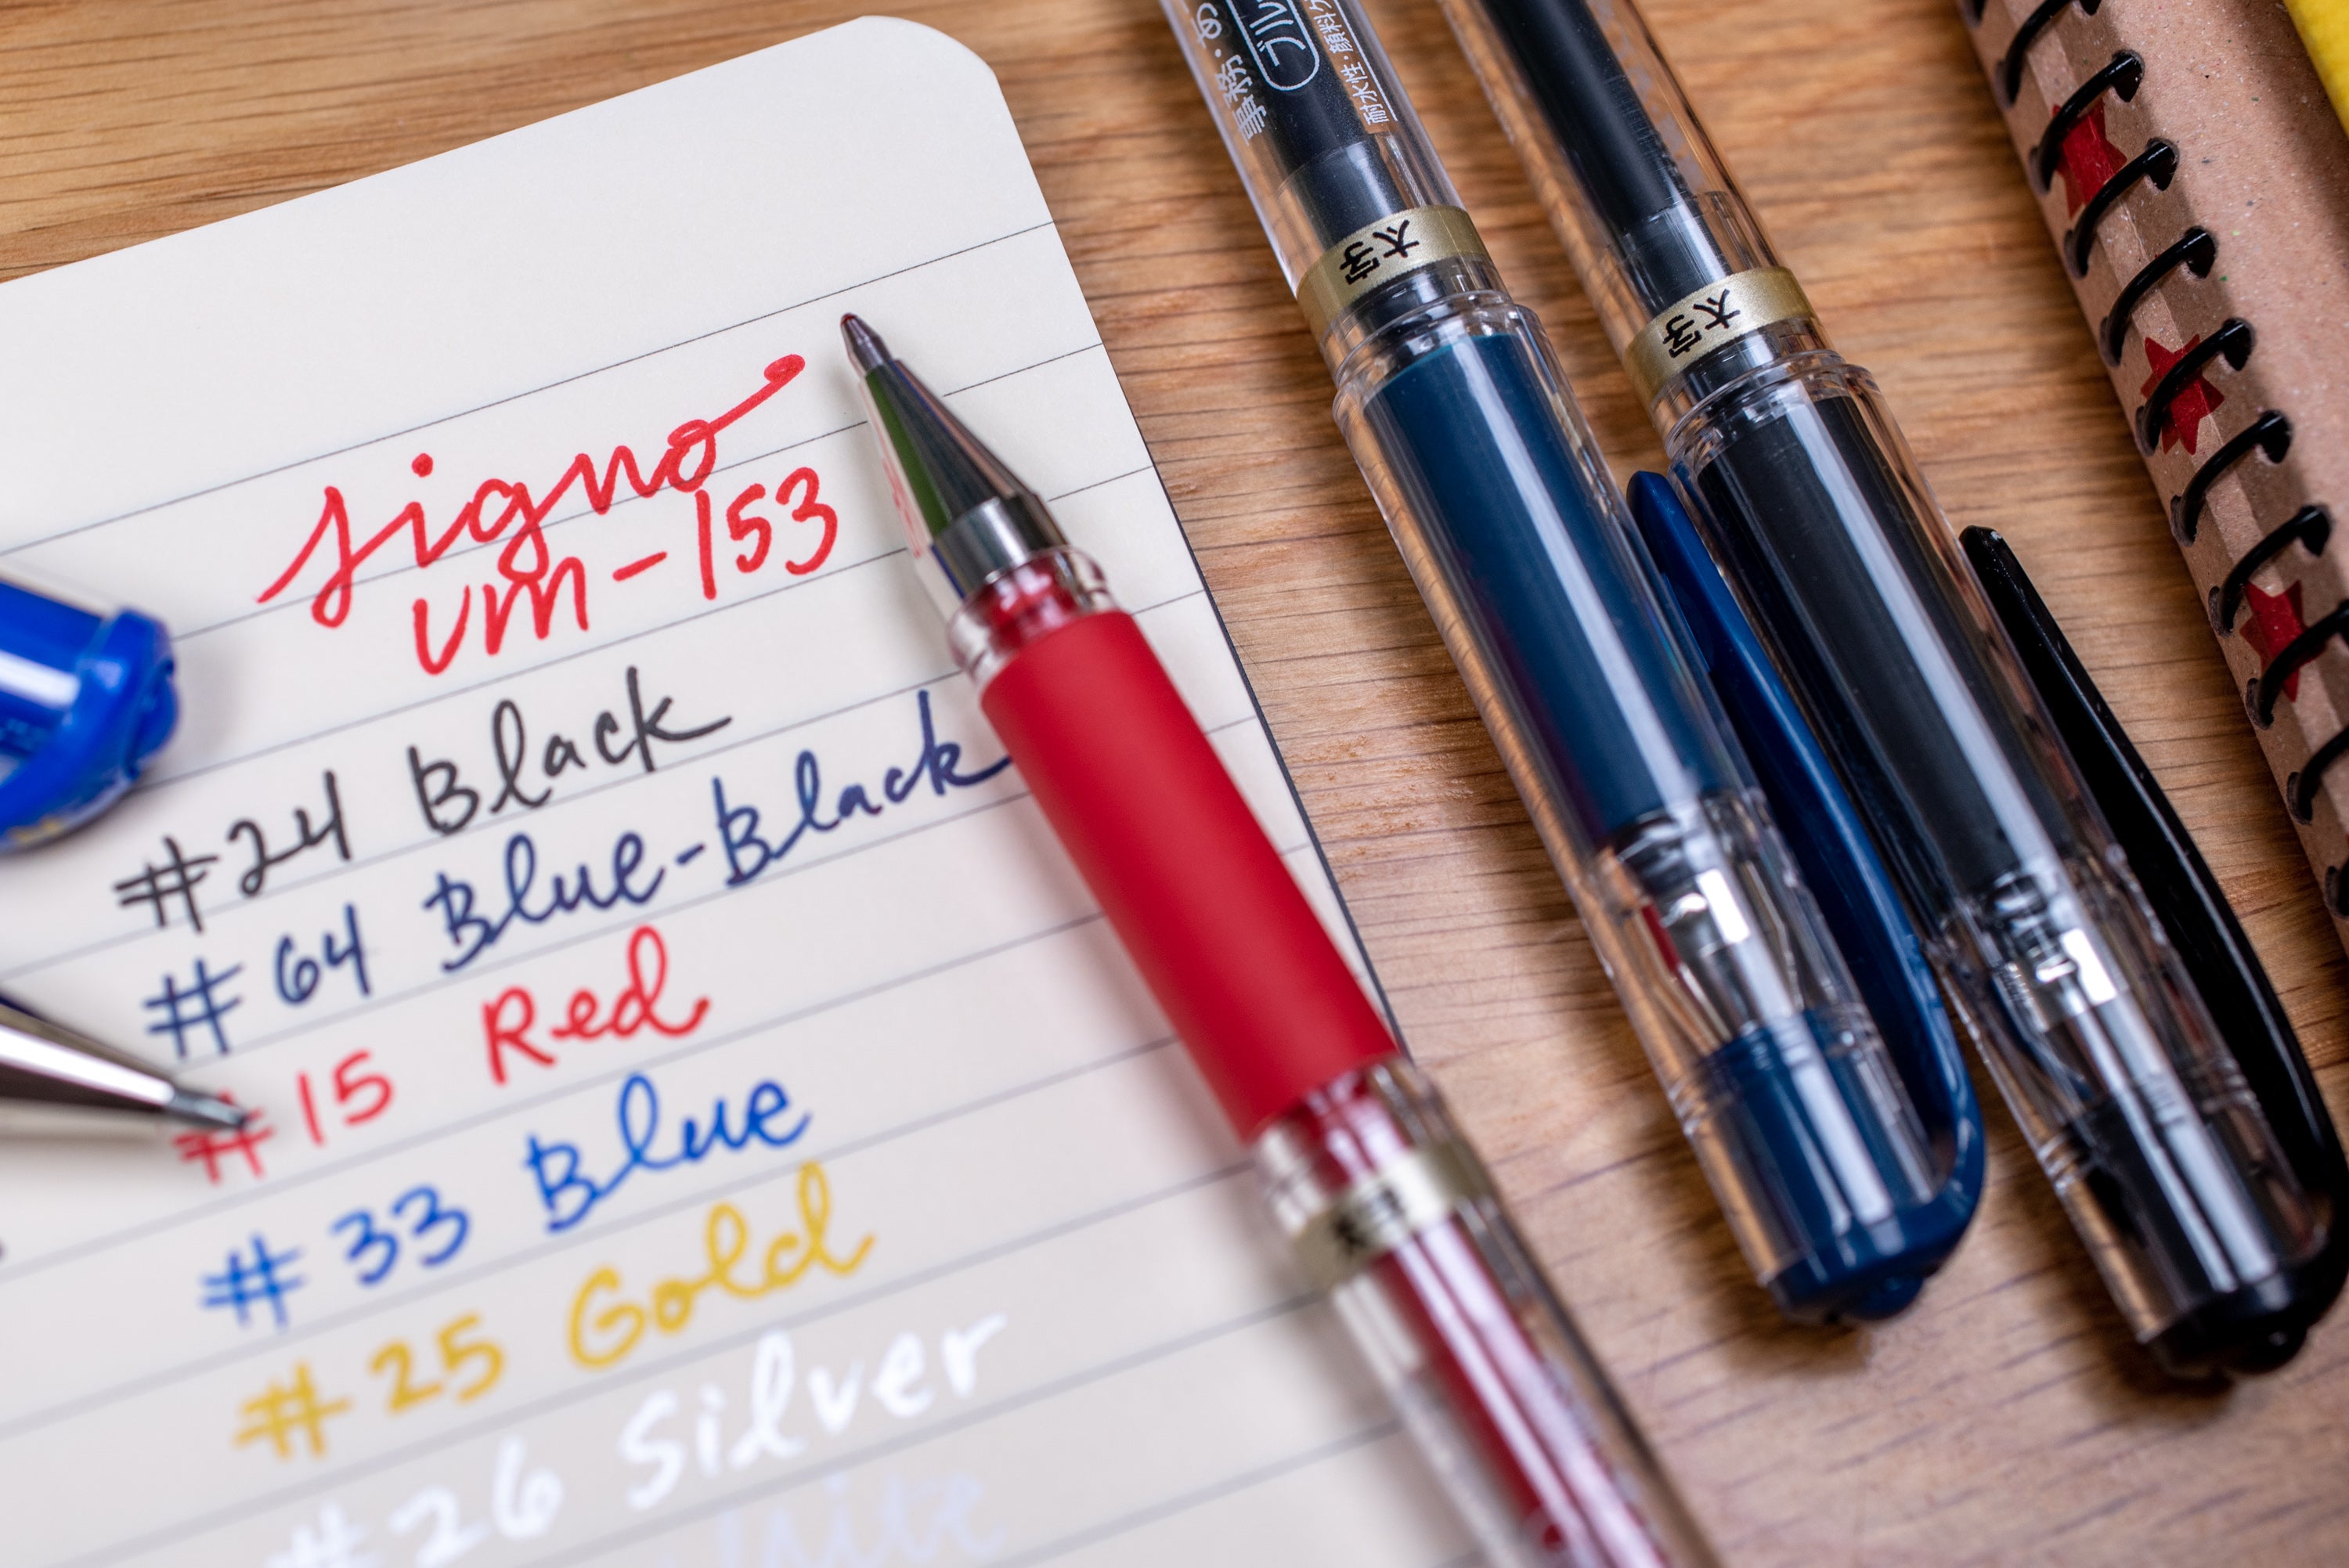 signo
um-153
#24 Black
#64 Blue-Black
#15 Red
#33 Blue
#25 Gold
#26 Silver
事務・
耐水性・顔料
太字
太字